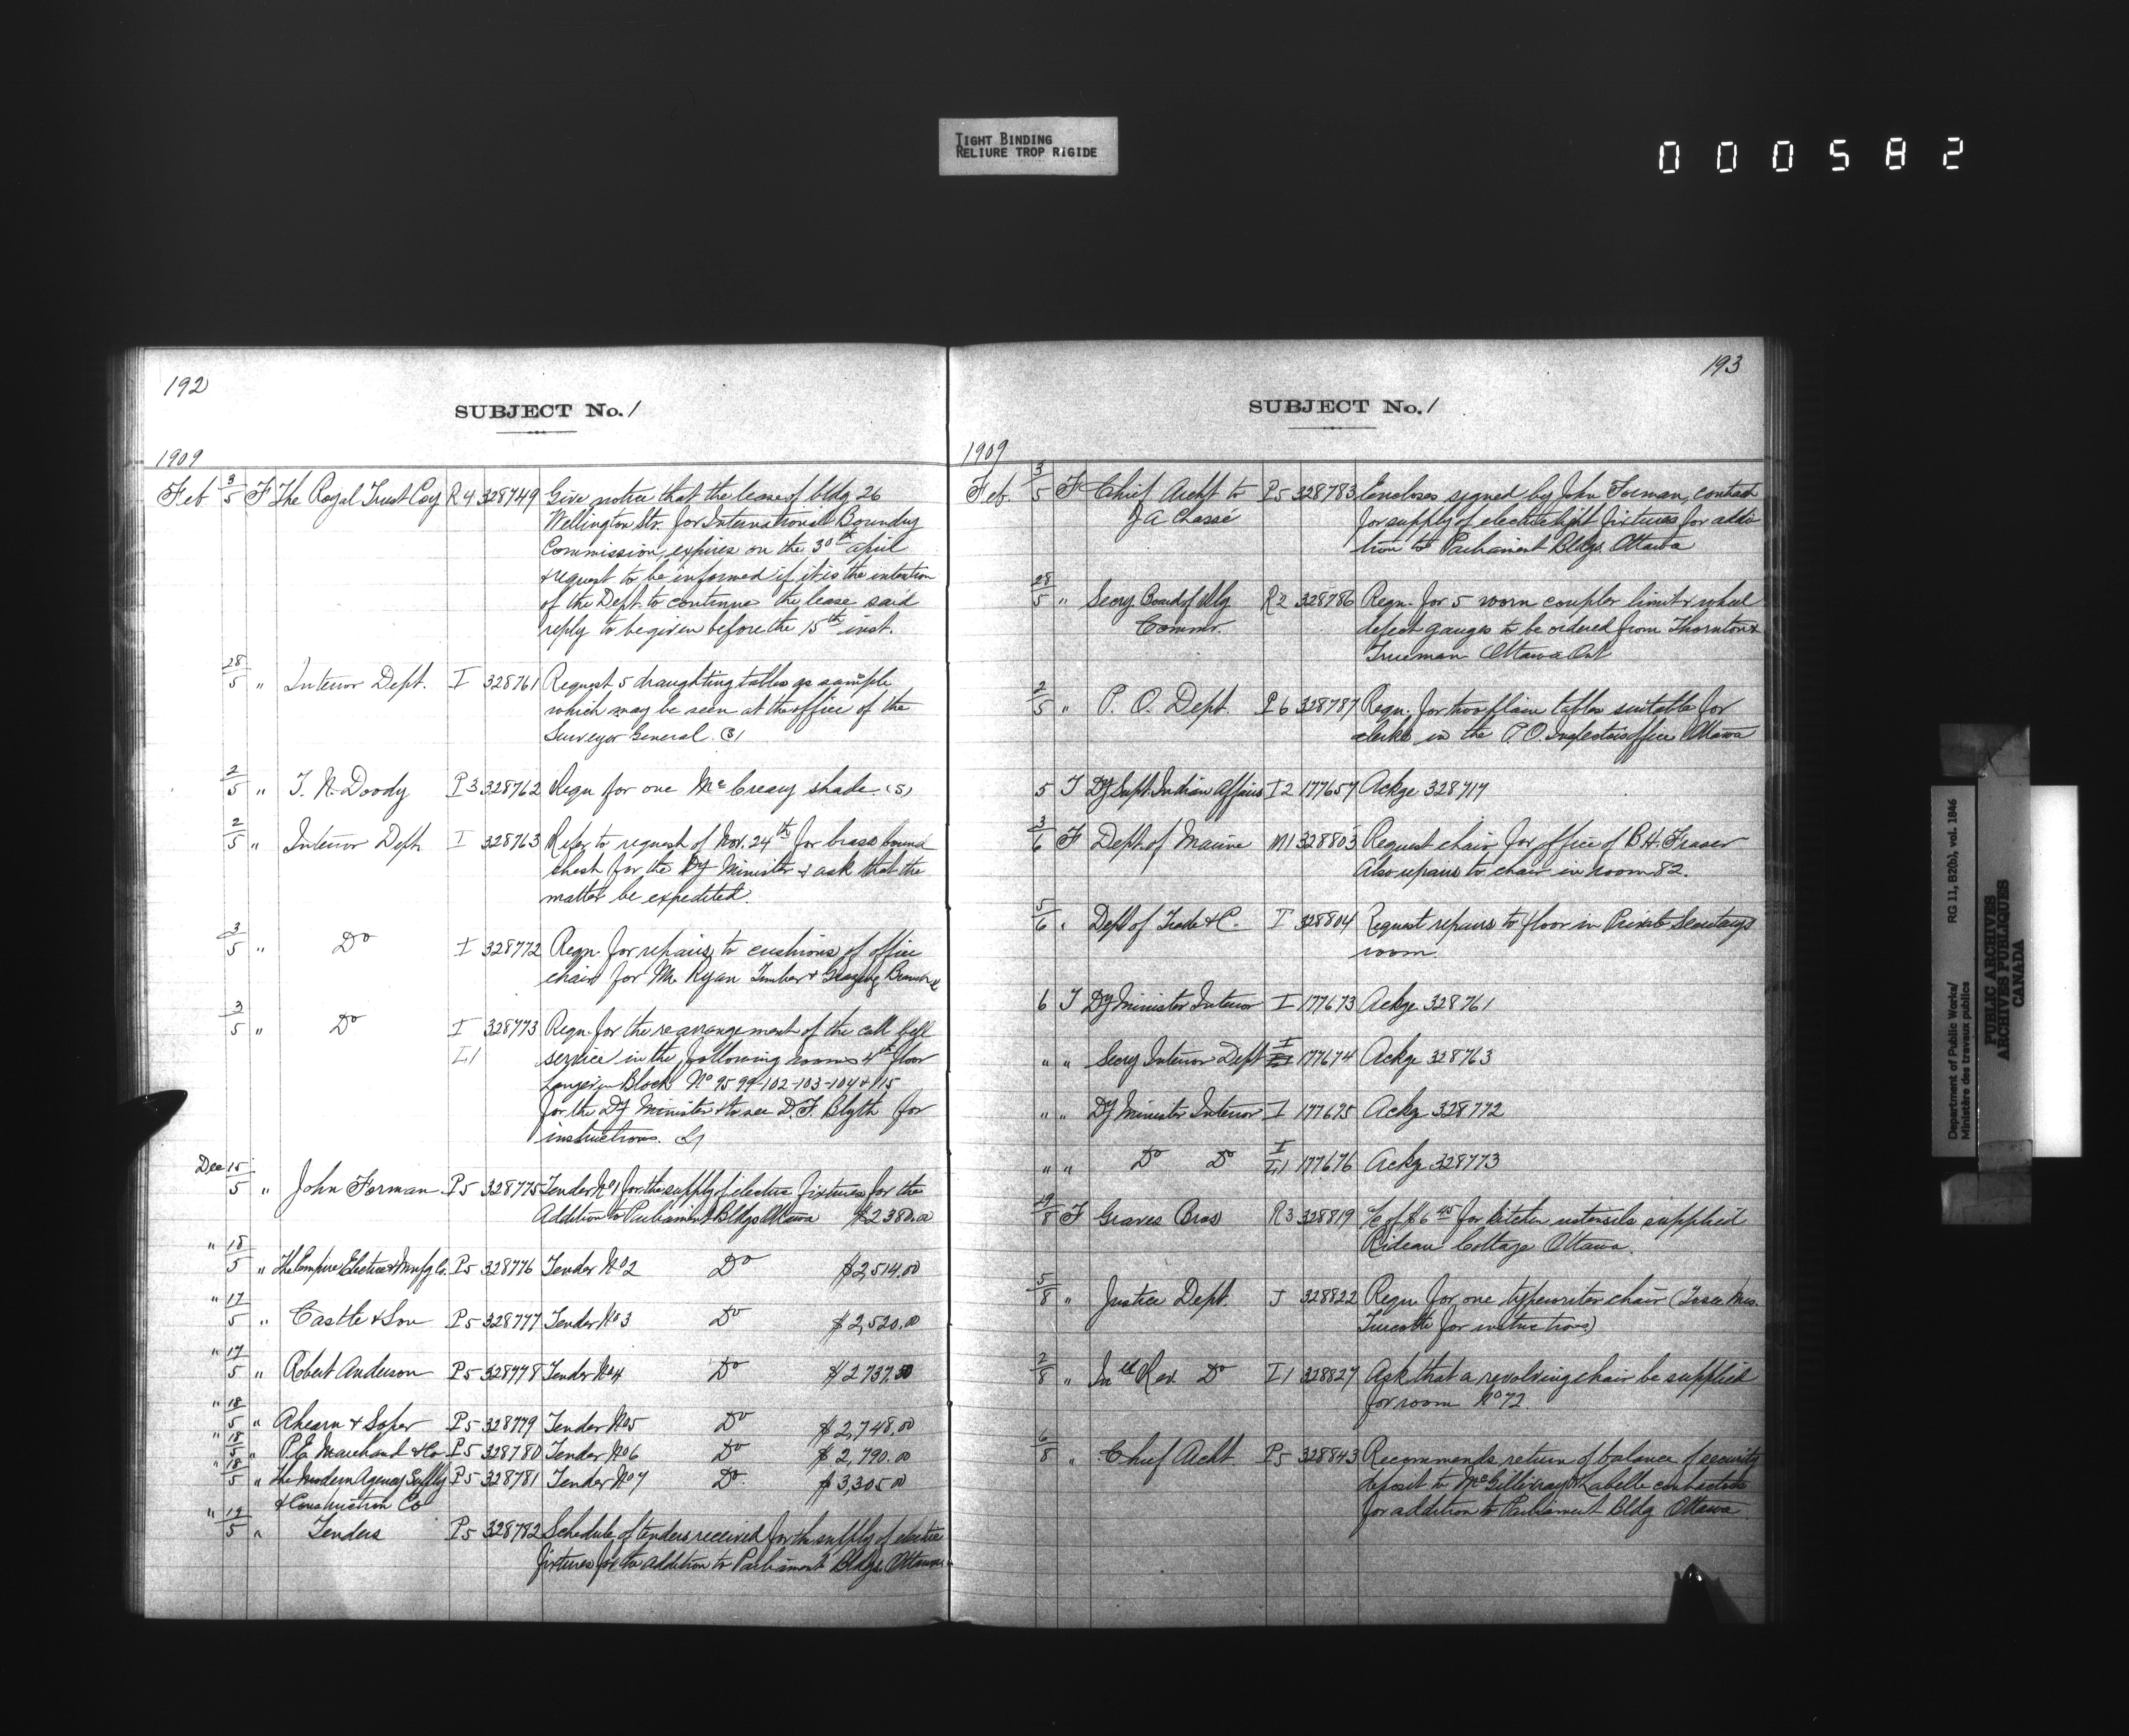 TIGHT BINDING
RELIURE TROP RIGIDE
000582
192
SUBJECT No. 1
1909
Feb 3/5 F The Royal Trust Coy R4 328749 Give notice that the lease of bldg 26
Wellington Str. for International Boundry
Commission, expires on the 30th april
& request to be informed if it is the intention
of the Dept. to continue the lease said
reply to be given before the 15th inst.
28/5 " Interior Dept. I 328761 Request 5 draughting tables as sample
which may be seen at the office of the
Surveyor General. (3)
2/5 " T. N. Doody P3 328762 Reqn for one McCreary shade. (S)
2/5 " Interior Dept I 328763 Refer to request of Nov. 24th for brass bound
chest for the Dy Minister & ask that the
matter be expedited.
3/5 " Do I 328772 Reqn. for repairs to cushions of office
chair for Mr Ryan Timber & Grazing Branch
3/5 " Do I 328773 Reqn. for the rearrangement of the call bell
L1 service in the following rooms 4th floor
Langevin Block No 95-99-102-103-104 & 115
for the Dy Minister & to see D. F. Blyth for
instructions.
Dec 15/5 " John Forman P5 328775 Tender No 1 for the supply of electric fixtures for the
Addition to Parliament Bldgs Ottawa $2380.00
" 18/5 " The Empire Electric & Mnfg Co. P5 328776 Tender No 2 Do $2,514.00
" 17/5 " Castle & Son P5 328777 Tender No 3 Do $2,520.00
" 17/5 " Robert Anderson P5 328778 Tender No 4 Do $2737.50
" 18/5 " Ahearn & Soper P5 328779 Tender No 5 Do $2,748.00
" 18/5 " P.E. Marchand & Co P5 328780 Tender No 6 Do $2,790.00
" 18/5 " The Modern Agency Supply P5 328781 Tender No 7 Do $3,305.00
& Construction Co
" 19/5 " Tenders P5 328782 Schedule of tenders received for the supply of electric
fixtures for the addition to Parliament Bldgs. Ottawa
193
SUBJECT No. 1
1909
Feb. 3/5 F Chief Archt to P5 328783 Encloses signed by John Forman, contract
J A Chassé for supply of electric light fixtures for addi
tion to Parliament Bldgs. Ottawa
28/5 " Secy. Board of Rly R2 328786 Reqn. for 5 worn coupler limit & wheel
Commr. defect gauges to be ordered from Thornton &
Trueman Ottawa Ont
2/5 " P. O. Dept. P6 328787 Reqn. for two plain tables suitable for
clerks in the P.O. Inspectors office Ottawa
5 T Dy Supt. Indian Affairs I2 177657 Ackge 328717
3/6 F Dept. of Marine M1 328803 Request chair for office of B.H. Fraser
Also repairs to chair in room 82.
5/6 " Dept of Trade & C. T 328804 Request repairs to floor in Private Secretarys
room.
6 T Dy Minister Interior I 177673 Ackge 328761
" " Secy Interior Dept I 177674 Ackge 328763
" " Dy Minister Interior I 177675 Ackg 328772
" " Do Do I L1 177676 Ackg 328773
19/8 F Graves Bros R3 328819 % of $6.45 for kitchen utensils supplied
Rideau Cottage Ottawa.
5/8 " Justice Dept. J 328822 Reqn for one typewriter chair (To see Mrs.
Turcotte for instructions)
2/8 " Inld Rev. Do I1 328827 Ask that a revolving chair be supplied
for room No 72.
6/8 " Chief Archt P5 328843 Recommends return of balance of security
deposit to McGillivray & Labelle contractors
for addition to Parliament Bldg Ottawa
Department of Public Works/ RG 11, B2(b), vol. 1846
Ministère des travaux publics
PUBLIC ARCHIVES
ARCHIVES PUBLIQUES
CANADA